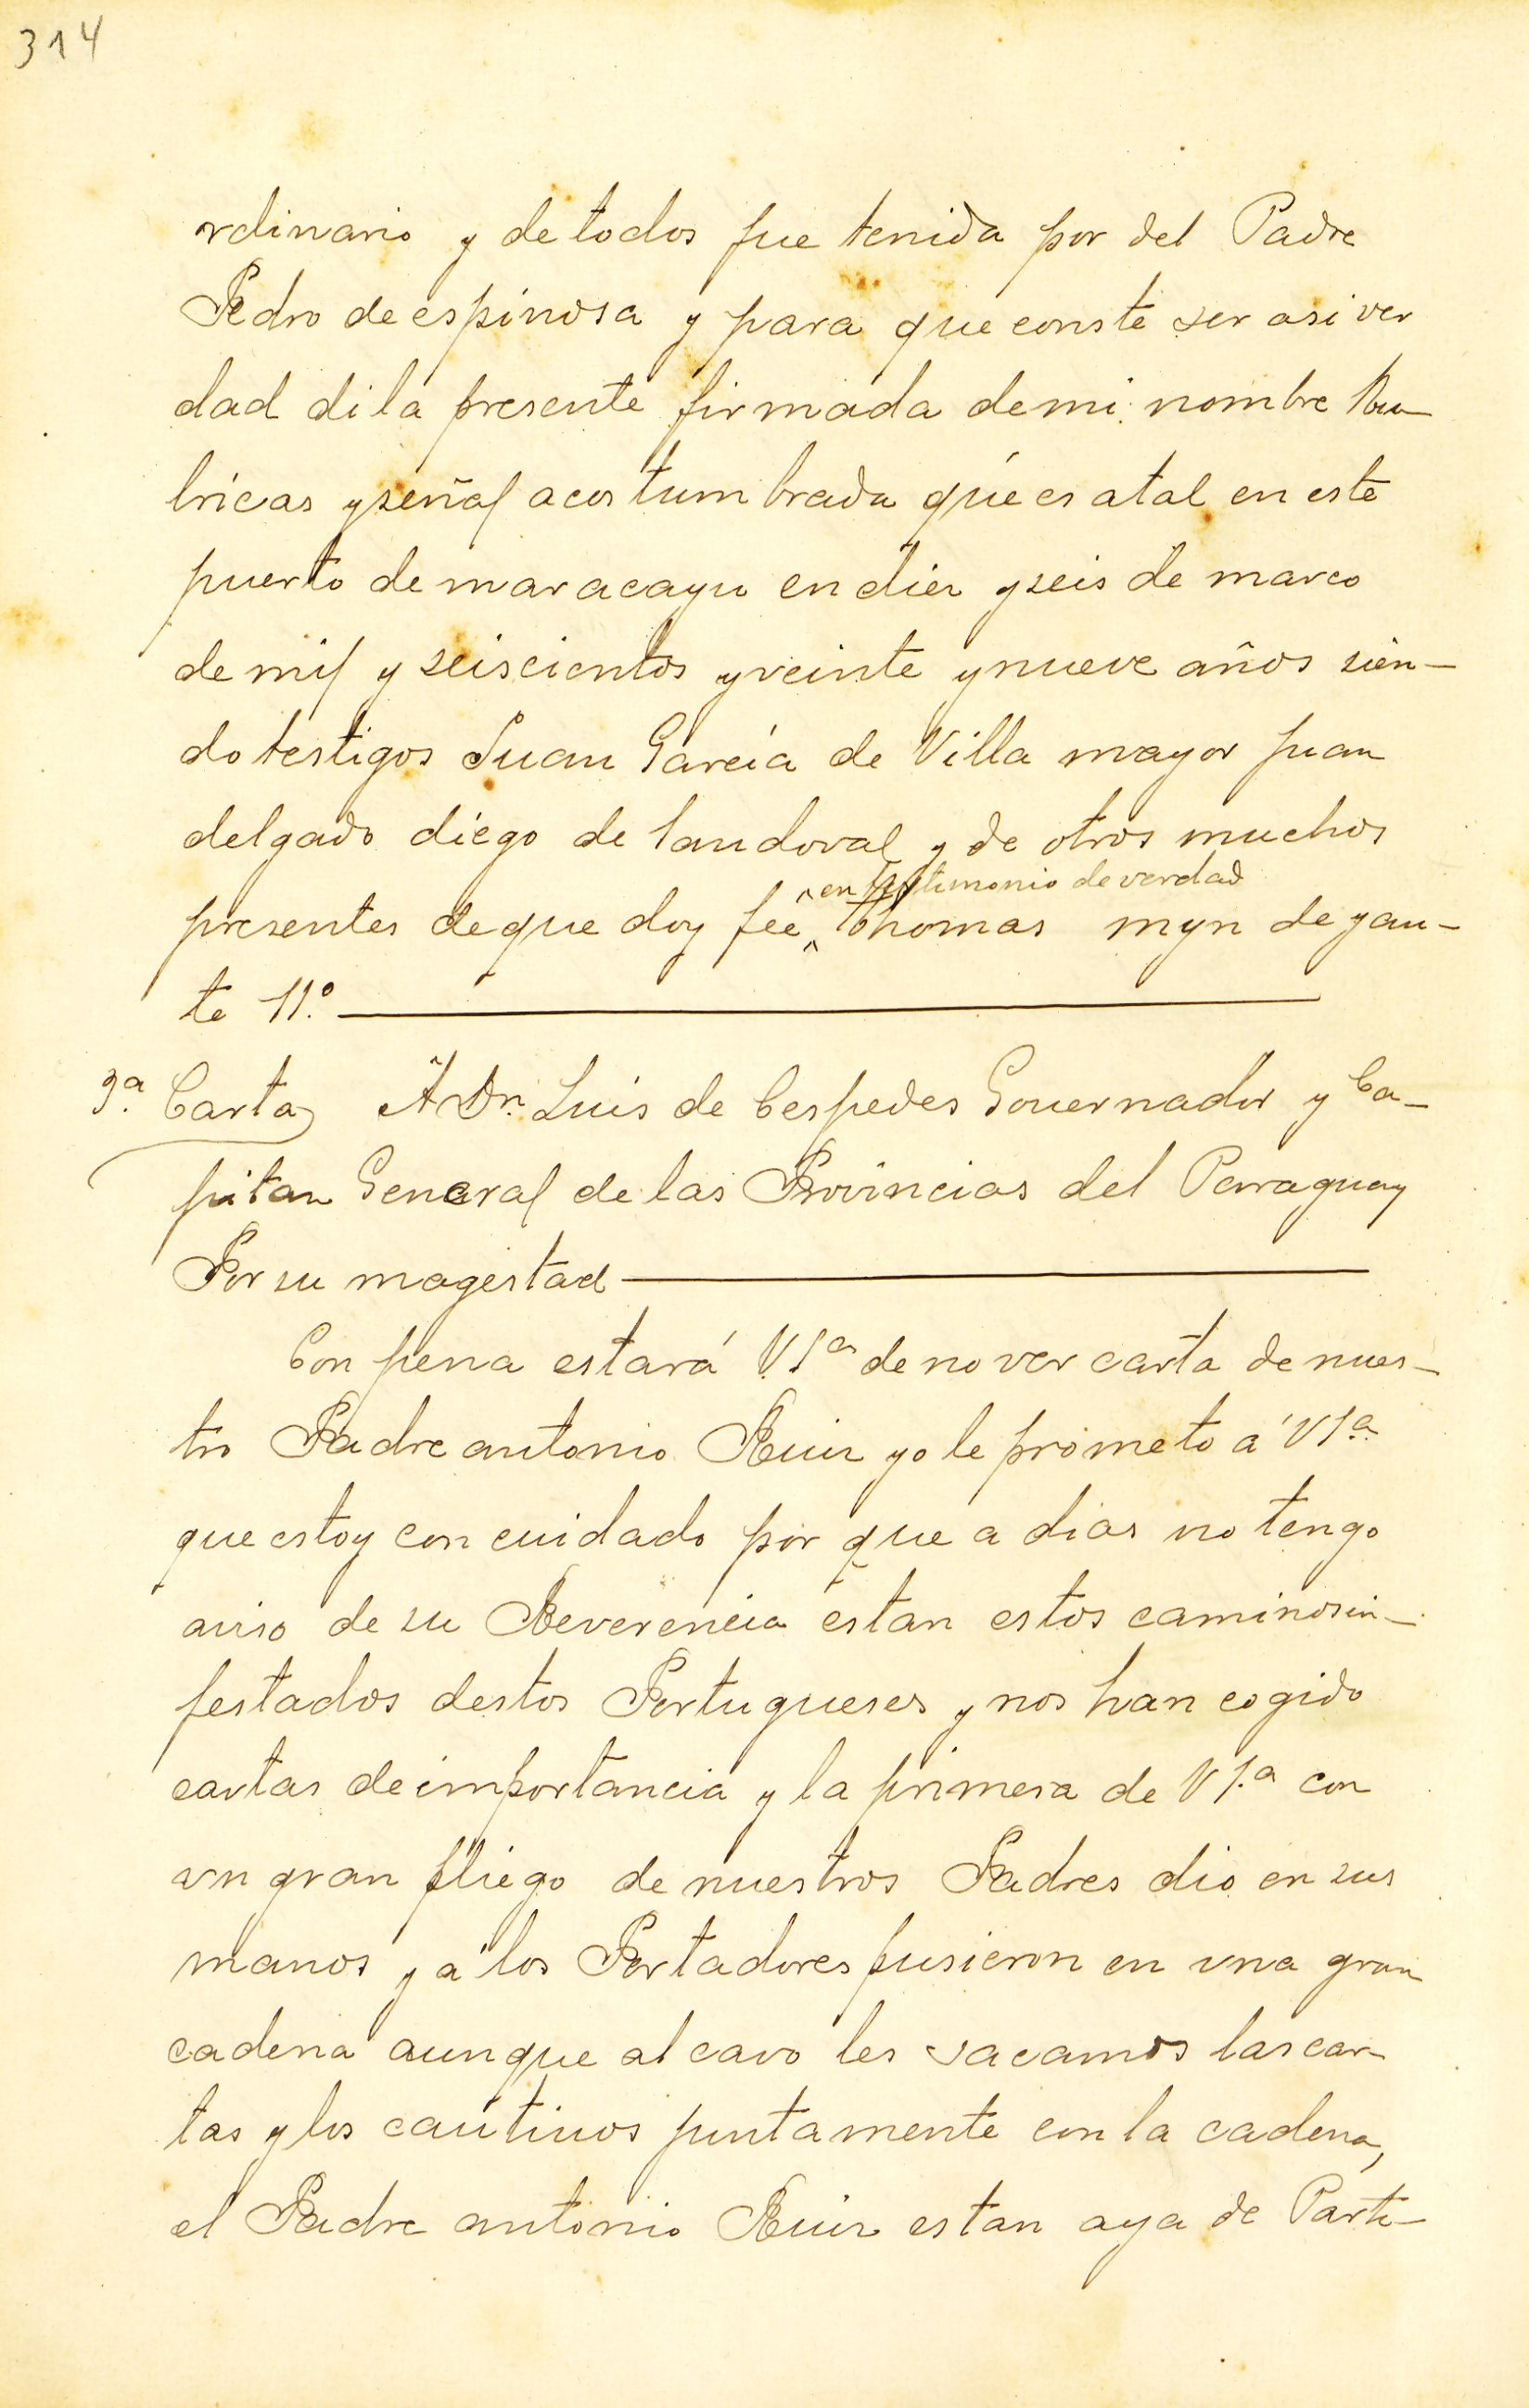 314
rdinario y de todos fue tenida por del Padre
Pedro de espinosa y para que conste ser asi ver
dad di la presente firmada de mi nombre Ru
bricas y señal acostumbrada que es atal en este
puerto de maracayu en diez y seis de marco
de mil y seiscientos y veinte y nueve años sien-
do testigos Juan García de Villa mayor juan
delgado diego de Sandoval y de otros muchos
en testimonio de verdad
presentes de que doy feé Thomas myn de yan-
te 11.º
3ª Carta A Dn. Luis de Cespedes Gouernador y Ca-
pitan General de las Provincias del Paraguay
Por su magestad
Con pena estará V Sª de no ver carta de nues-
tro Padre antonio Ruiz yo le prometo á V Sª
que estoy con cuidado por que a dias no tengo
auiso de su Reverencia estan estos caminos in-
festados destos Portugueses y nos han cogido
cartas de importancia y la primera de V S.ª con
vn gran pliego de nuestros Padres dio en sus
manos y a los Portadores pusieron en vna gran
cadena aunque al cavo les sacamos las car-
tas y los cautiuos juntamente con la cadena,
el Padre antonio Ruiz estan aya de Parte